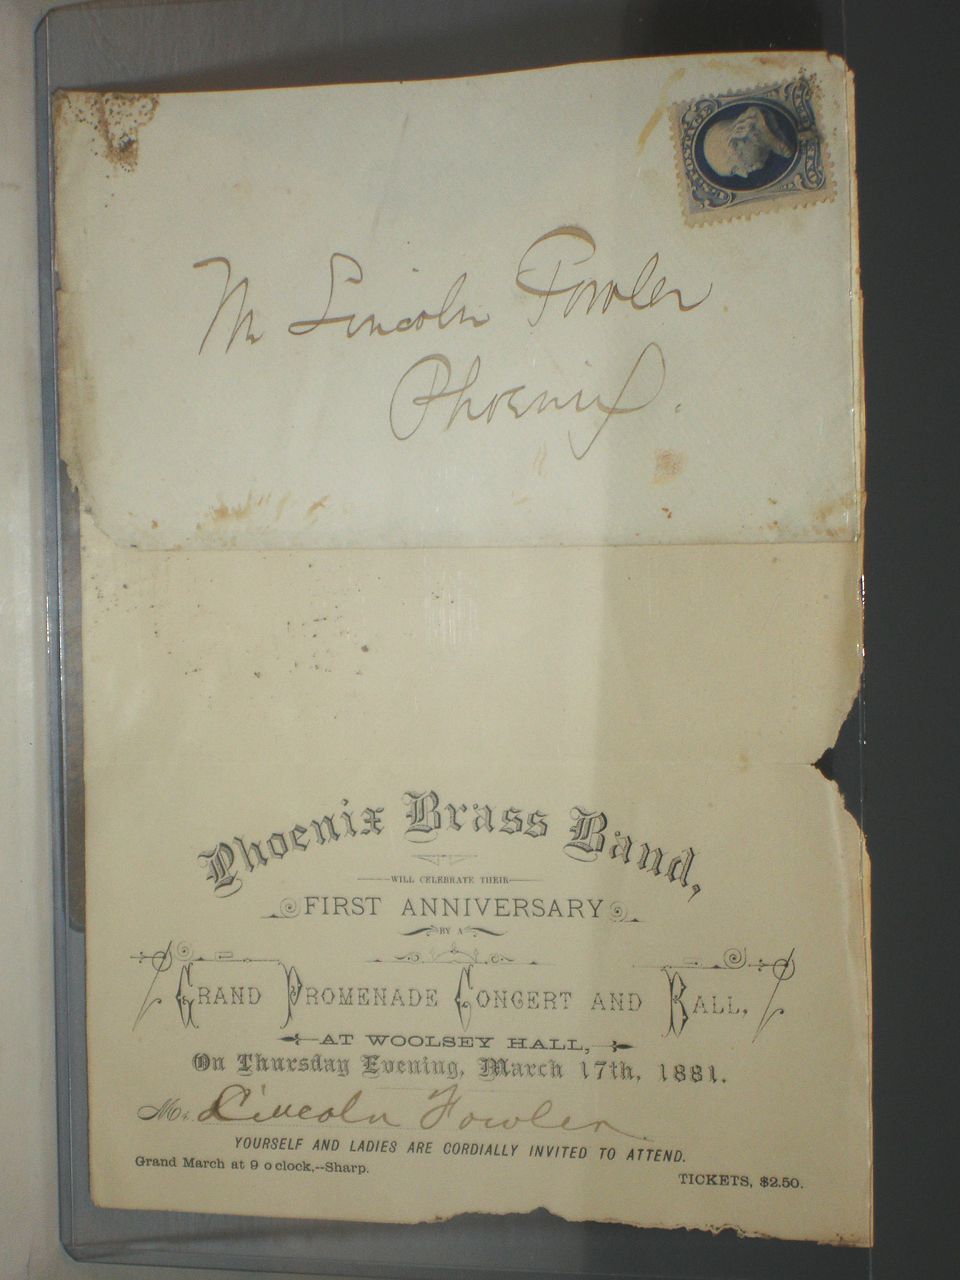 U.S. POSTAGE
ONE CENT
Mr Lincoln Fowler
Phoenix.
Phoenix Brass Band,
WILL CELEBRATE THEIR
FIRST ANNIVERSARY
BY A
GRAND PROMENADE CONCERT AND BALL,
AT WOOLSEY HALL,
On Thursday Evening, March 17th, 1881.
Mr. Lincoln Fowler
YOURSELF AND LADIES ARE CORDIALLY INVITED TO ATTEND.
Grand March at 9 o clock,--Sharp.
TICKETS, $2.50.